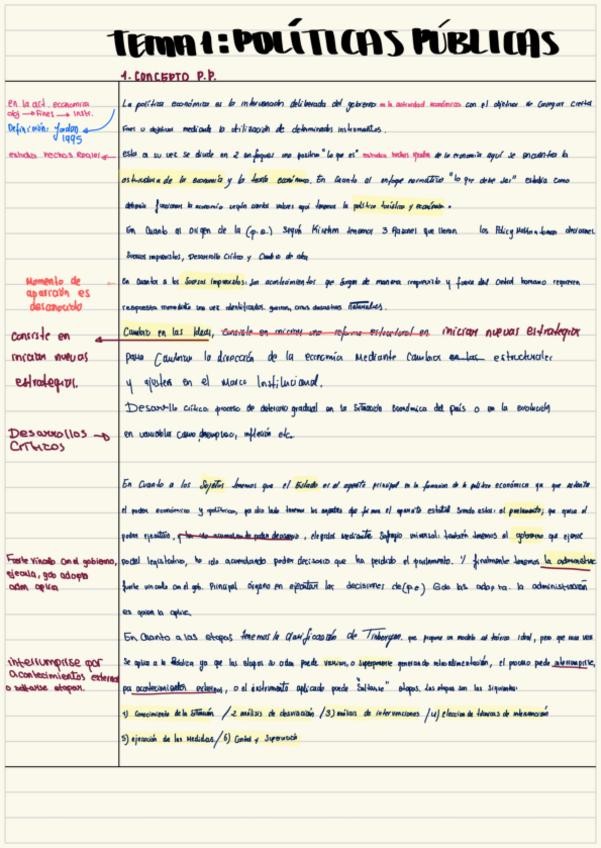 TEMA 1: POLÍTICAS PÚBLICAS
1. CONCEPTO P.P.
en la act. economica
obj → Fines → instr.
Definición: Jordan
1995
estudia hechos Reales
La política económica es la intervención deliberada del gobierno en la actividad económica con el objetivo de conseguir ciertos
fines u objetivos mediante la utilización de determinados instrumentos.
esta a su vez se divide en 2 enfoques uno positivo "lo que es" estudia hechos reales de la economía aquí se encuentra la
estructura de la economía y la teoría económica. En cuanto al enfoque normativo "lo que debe ser" estudia como
debería funcionar la economía según ciertos valores aquí tenemos la política turística y económica.
En Cuanto al origen de la (p.e.) Según Kirschen tenemos 3 Razones que llevan los Policy Makers a tomar decisiones
Sucesos imprevistos, Desarrollo Crítico y Cambio de idea
Momento de
aparición es
desconocido
en cuanto a los Sucesos imprevistos: son acontecimientos que surgen de manera imprevista y fuera del control humano requieren
respuesta inmediata una vez identificados. guerras, crisis desastres naturales.
Consiste en
iniciar nuevas
estrategias.
Cambio en las Ideas, consiste en iniciar una reforma estructural en iniciar nuevas estrategias
para Cambiar la dirección de la economía Mediante Cambios en las estructurales
y ajustes en el Marco Institucional.
Desarrollos
Críticos
Desarrollo crítico: proceso de deterioro gradual en la situación económica del país o en la evolución
en variables como desempleo, inflación etc.
En Cuanto a los Sujetos tenemos que el Estado es el agente principal en la formación de la política económica ya que ostenta
el poder económico y político, por otro lado tenemos los agentes que forman el aparato estatal siendo estos: el parlamento; que ejerce el
poder legislativo, elegidos mediante Sufragio universal. también tenemos al gobierno que ejerce
Fuerte vinculo con el gobierno,
ejecuta, gob adopta
adm aplica
poder legislativo, ha ido acumulando poder decisorio que ha perdido el parlamento. Y finalmente tenemos la administra
fuerte vinculo con el gob. Principal órgano en ejecutar las decisiones de (p.e) Gob las adopta. la administración
es quien la aplica.
En Cuanto a las etapas tenemos la clasificación de Tinbergen. que propone un modelo al teórico ideal, pero que una vez
interrumpirse por
acontecimientos externos
o saltarse etapas.
Se aplica a la Práctica ya que las etapas su orden puede variar, o superponerse generando retroalimentación, el proceso puede interrumpirse,
por acontecimientos externos, o el instrumento aplicado puede "Saltarse" etapas. Las etapas son las siguientes:
1) Conocimiento de la Situación / 2 análisis de observación / 3) análisis de intervenciones / 4) elección de técnicas de intervención
5) ejecución de las Medidas / 6) Control y Supervisión